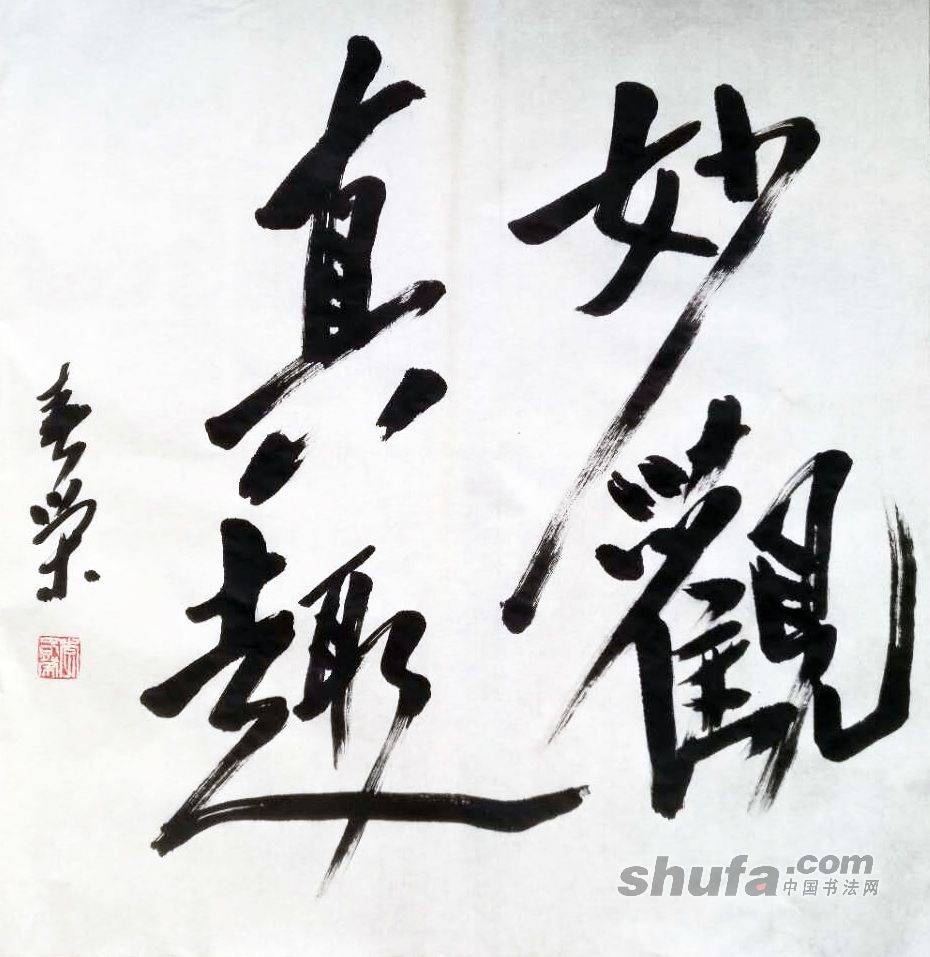 妙觀
真趣
春榮
shufa.com
中国书法网